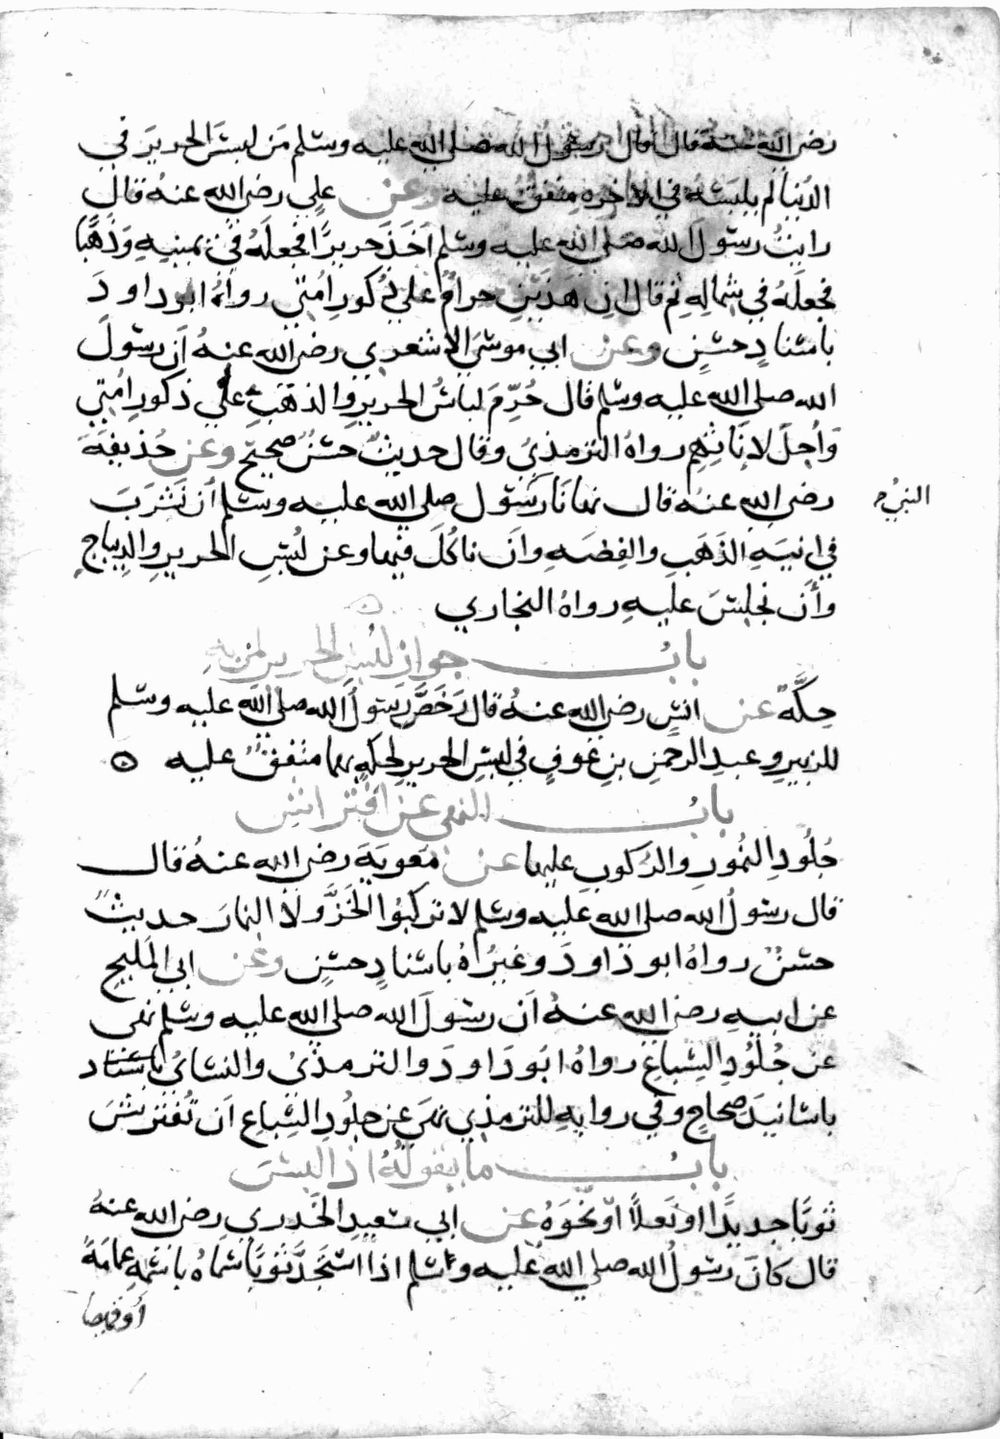 رضي الله عنه قال قال رسول الله صلى الله عليه وسلم مَن لبسَ الحريرَ في
الدُنيا لم يلبَسْهُ في الاخرة متفقٌ عليه وعن علي رضي الله عنهُ قال
رايتُ رسولَ الله صلى الله عليه وسلم اَخَذَ حريرًا فجعلَهُ في يمينِهِ وذَهَبًا
فجعلَهُ في شمالِهِ ثم قال ان هذَينِ حرامٌ على ذُكورِ اُمتي رواهُ ابو داود
باسنادٍ حسنٍ وعن ابي موسَى الاشعري رضي الله عنهُ اَن رسولَ
الله صلى الله عليه وسلم قال حُرِّمَ لباسُ الحريرِ والذهَبِ على ذكورِ اُمتي
وَاُحِلَ لاِنَاثِهِم رواهُ الترمذيُ وقال حديثٌ حسنٌ صحيح وعن حُذيفةَ
رضي الله عنهُ قال نهانَا رَسُول صلى الله عليه وسلم اَن نَشرَبَ
النبيُ
في انيةِ الذَهَبِ والفِضةِ واَن ناكُلَ فيها وعن لُبسِ الحريرِ والديباجِ
وأَن نجلِسَ عليهِ رواهُ البخاري
بابُ جوازِ لُبسِ الحرير لمن به
حِكَّةٌ عن انسٍ رضي الله عنهُ قال رَخَّصَ رَسولُ الله صلى الله عليه وسلم
للزبيرِ وعبدِ الرحمنِ بنِ عَوفٍ في لبسِ الحريرِ لحِكةٍ بهما متفقٌ عليه ه
بابُ النهي عن افتراشِ
جُلُودِ النُمورِ والرُكوبِ عليها عن مُعويةَ رضي الله عنهُ قال
قال رسُولُ الله صلى الله عليه وسلم لا تركبُوا الخَزَّ ولا النمارَ حديثٌ
حسنٌ رواهُ ابو داودَ وغيرُاهُ باسنادٍ حسنٍ وعن ابي المَليحِ
عن ابيهِ رضي الله عنهُ اَن رسولَ الله صلى الله عليه وسلم نهى
عن جُلُودِ السِباعِ رواهُ ابُو دَاودَ والترمذيُ والنسائيُ باسناد
باسانيدَ صحاحٍ وفي روايةٍ للترمذي نهَى عن جلودِ السِباعِ اَن تُفترشَ
بابُ ما يقولُهُ اذا لبسَ
ثوبًا جديدًا او نَعلًا او نحوَهُ عن ابي سَعيدٍ الخُدري رضي الله عنهُ
قال كانَ رسولُ الله صلى الله عليه وسلم اذا استَجَدَّ ثوبًا سماهُ باسمِهِ عمامَةً
أو قميصا